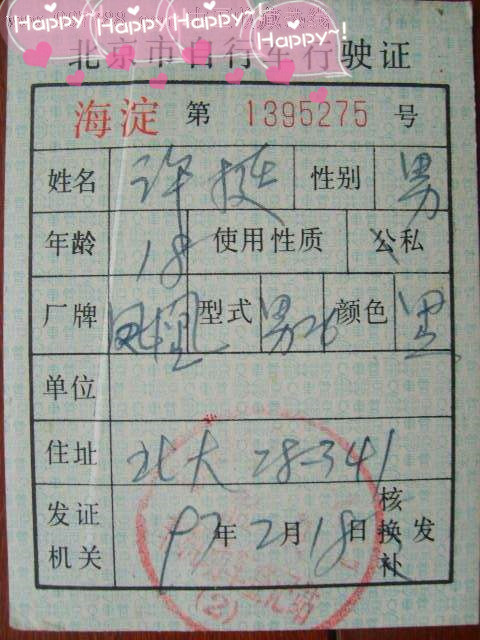 Happy~! Happy~! Happy~!
北京市自行车行驶证
海淀 第 1395275 号
姓名 许挺 性别 男
年龄 18 使用性质 公私
厂牌 凤凰 型式 男26 颜色 黑
单位
住址 北大 28-341
发证机关 97年2月18日 核换补发
(2)